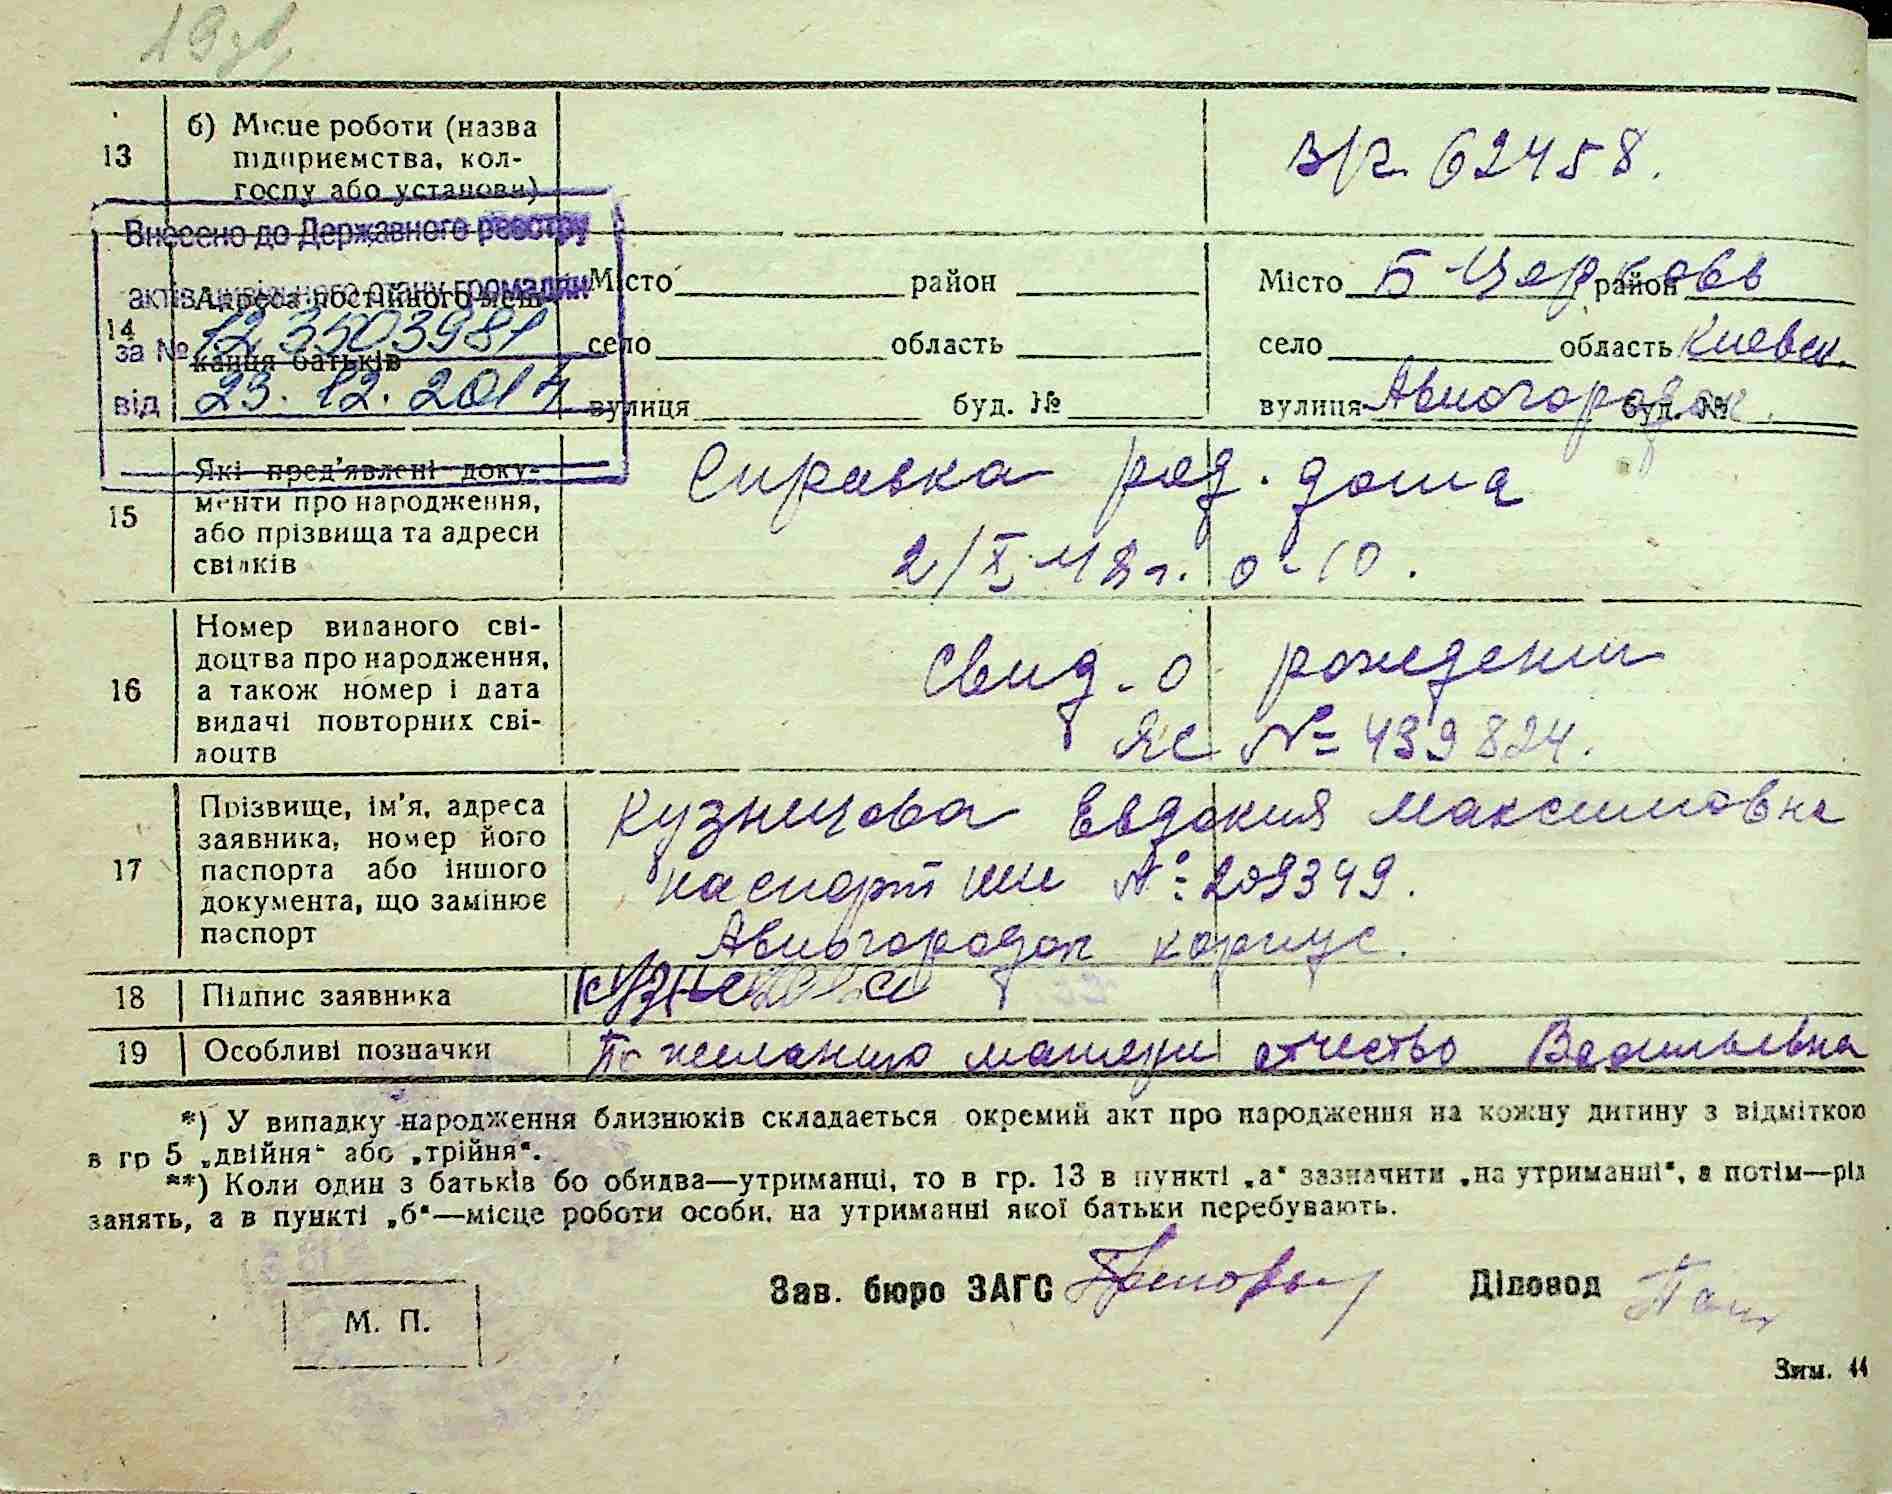 19 зв.
13 б) Місце роботи (назва підприємства, колгоспу або установи) в/ч. 62458.
Внесено до Державного реєстру
актів цивільного стану громадян
за № 12 3503981
від 23. 12. 2014
14 Адреса постійного меш-
кання батьків
Місто район Місто Б Церковь район
село область село область Киевск.
вулиця буд. № вулиця Авиогородок. буд. №
15 Які пред'явлені доку-
менти про народження,
або прізвища та адреси
свідків
Справка род. дома
2/X 48 г.
16 Номер виданого сві-
доцтва про народження,
а також номер і дата
видачі повторних сві-
доцтв
Свид. о рождении
ЯС № 439824.
17 Прізвище, ім'я, адреса
заявника, номер його
паспорта або іншого
документа, що замінює
паспорт
Кузнецова Евдокия Максимовна
паспорт № 209349.
Авиогородок корпус.
18 Підпис заявника Кузнецова
19 Особливі позначки По желанию матери отчество Васильевна
*) У випадку народження близнюків складається окремий акт про народження на кожну дитину з відміткою
в гр 5 „двійня“ або „трійня“.
**) Коли один з батьків бо обидва—утриманці, то в гр. 13 в пункті „а“ зазначити „на утриманні“, а потім—рід
занять, а в пункті „б“—місце роботи особи, на утриманні якої батьки перебувають.
Зав. бюро ЗАГС Діловод
М. П.
Зим. 44